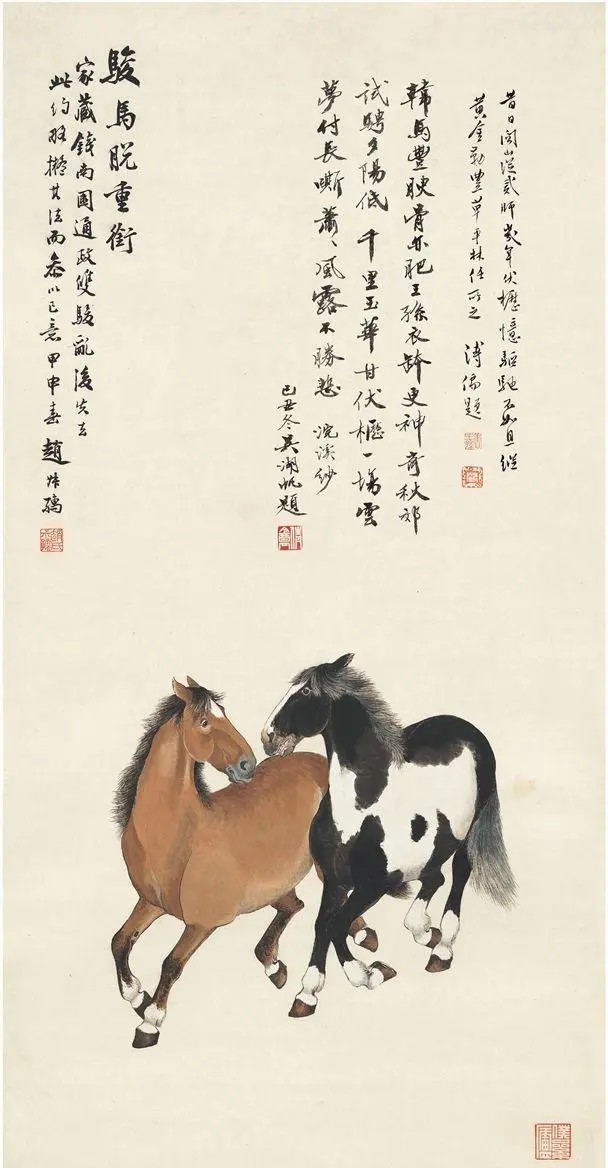 昔日關山從貳師幾年伏櫪憶驅馳不如且縱
黃金勒豐草平林任所之 溥儒題
韓馬豐腴骨亦肥王孫衣缽更神奇秋郊
試騁夕陽低 千里玉華甘伏櫪一場雲
夢付長嘶蕭〻風露不勝悲 浣溪紗
己丑冬吳湖帆題
駿馬脫重銜
家藏錢南園通政雙駿亂後失去
此約略擬其法而參以己意甲申春 趙叔孺